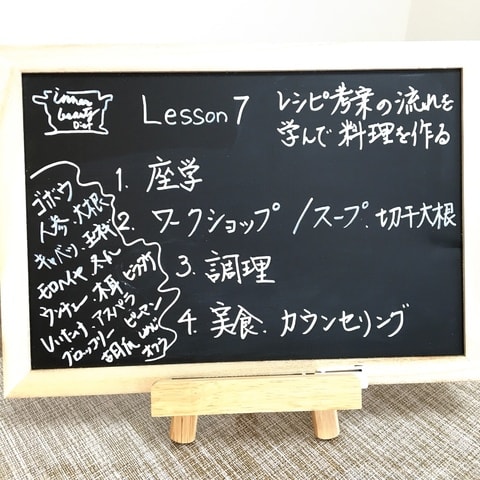 inner
beauty
Diet
Lesson 7
レシピ考案の流れを
学んで料理を作る
1. 座学
2. ワークショップ /スープ.切干大根
3. 調理
4. 実食.カウンセリング
ゴボウ
人参 大根
キャベツ・玉ねぎ
モロヘイヤ
木耳
しいたけ・アスパラ
ブロッコリー ピーマン
オクラ